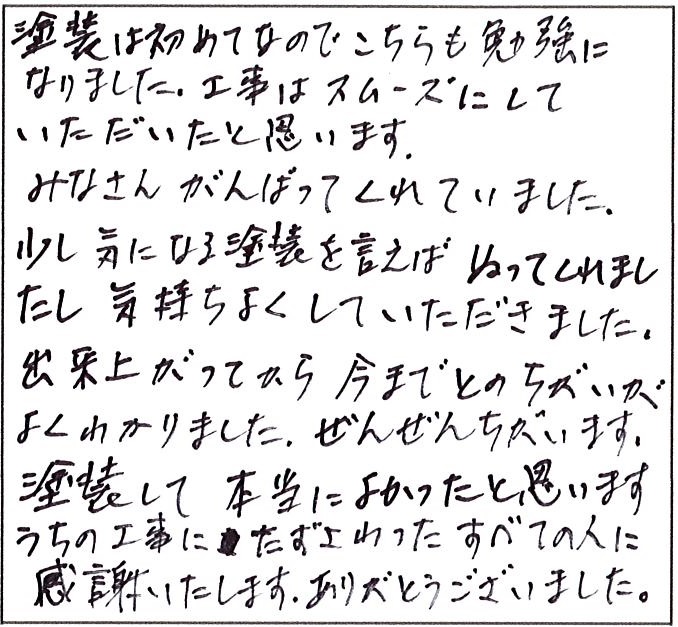 塗装は初めてなのでこちらも勉強に
なりました。工事はスムーズにして
いただいたと思います。
みなさん がんばってくれていました。
少し気になる塗装を言えば ぬってくれまし
たし 気持ちよくしていただきました。
出来上がってから 今までとのちがいが
よくわかりました。ぜんぜんちがいます。
塗装して 本当によかったと思います
うちの工事に たずさわった すべての人に
感謝いたします。ありがとうございました。